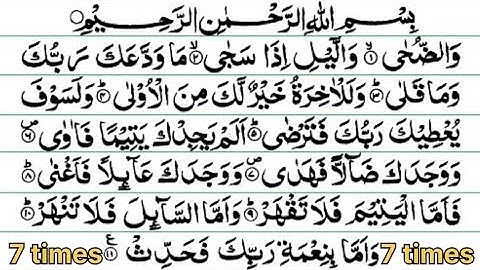 بِسْمِ اللّٰهِ الرَّحْمٰنِ الرَّحِيْمِ ○
وَالضُّحٰى ۙ﴿۱﴾ وَالَّيْلِ اِذَا سَجٰى ۙ﴿۲﴾ مَا وَدَّعَكَ رَبُّكَ
وَمَا قَلٰى ؕ﴿۳﴾ وَلَلْاٰخِرَةُ خَيْرٌ لَّكَ مِنَ الْاُوْلٰى ؕ﴿۴﴾ وَلَسَوْفَ
يُعْطِيْكَ رَبُّكَ فَتَرْضٰى ؕ﴿۵﴾ اَلَمْ يَجِدْكَ يَتِيْمًا فَاٰوٰى ۪﴿۶﴾
وَوَجَدَكَ ضَآلًّا فَهَدٰى ۪﴿۷﴾ وَوَجَدَكَ عَآئِلًا فَاَغْنٰى ؕ﴿۸﴾
فَاَمَّا الْيَتِيْمَ فَلَا تَقْهَرْ ؕ﴿۹﴾ وَاَمَّا السَّآئِلَ فَلَا تَنْهَرْ ؕ﴿۱۰﴾
7 times وَاَمَّا بِنِعْمَةِ رَبِّكَ فَحَدِّثْ ﴿۱۱﴾ ع 7 times